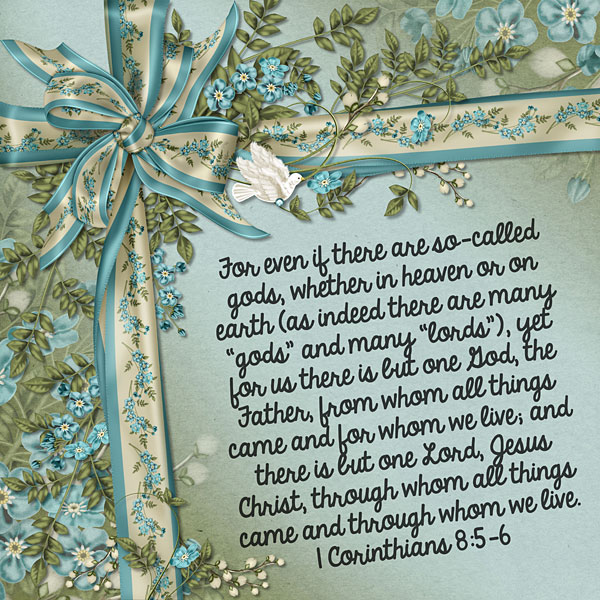 For even if there are so-called
gods, whether in heaven or on
earth (as indeed there are many
"gods" and many "lords"), yet
for us there is but one God, the
Father, from whom all things
came and for whom we live; and
there is but one Lord, Jesus
Christ, through whom all things
came and through whom we live.
1 Corinthians 8:5-6